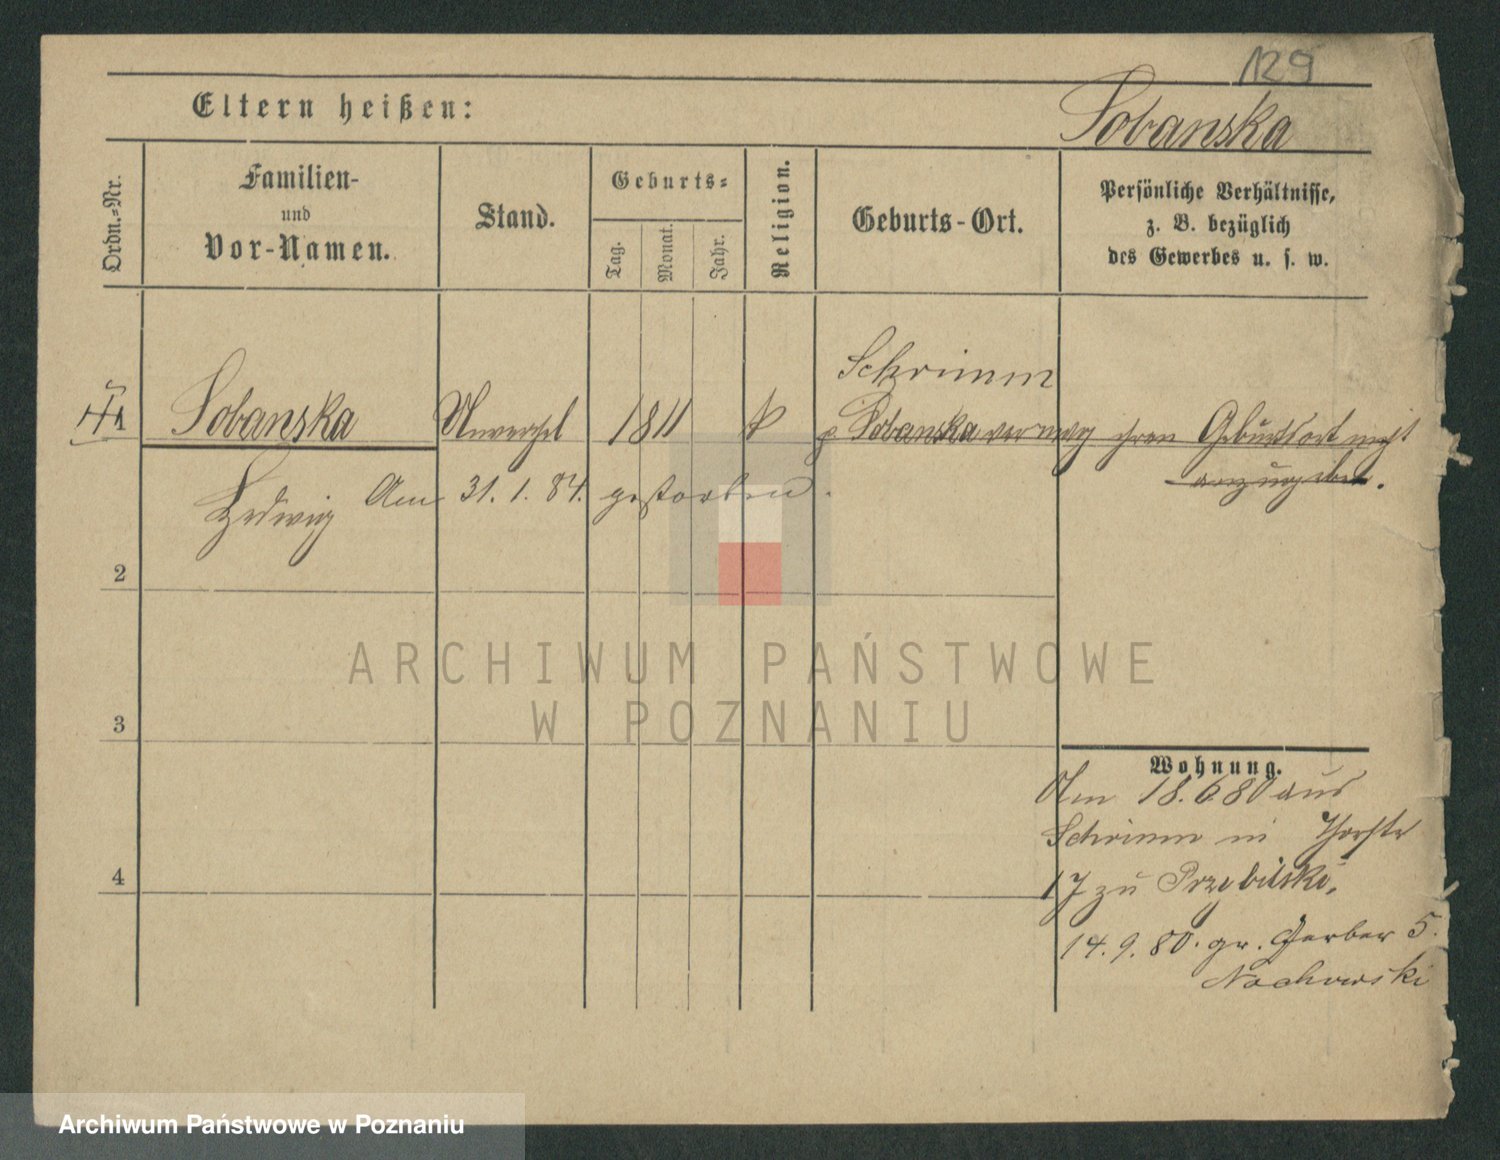 129
Eltern heißen:
Sobanska
Ordn.-Nr.
Familien-
und
Vor-Namen.
Stand.
Geburts-
Tag.
Monat.
Jahr.
Religion.
Geburts-Ort.
Persönliche Verhältnisse,
z. B. bezüglich
des Gewerbes u. s. w.
Schrimm
Sobanska Unverehl 1811 k p Sobanska vermag ihren Geburtsort nicht
anzugeben.
Hedwig Am 31. 1. 84. gestorben.
2
ARCHIWUM PAŃSTWOWE
W POZNANIU
3
Wohnung.
Am 18.6.80 aus
Schrimm in Thorstr
4
17 zu Przybilski,
14.9.80. gr. Gerber 5.
Nochowski
Archiwum Państwowe w Poznaniu